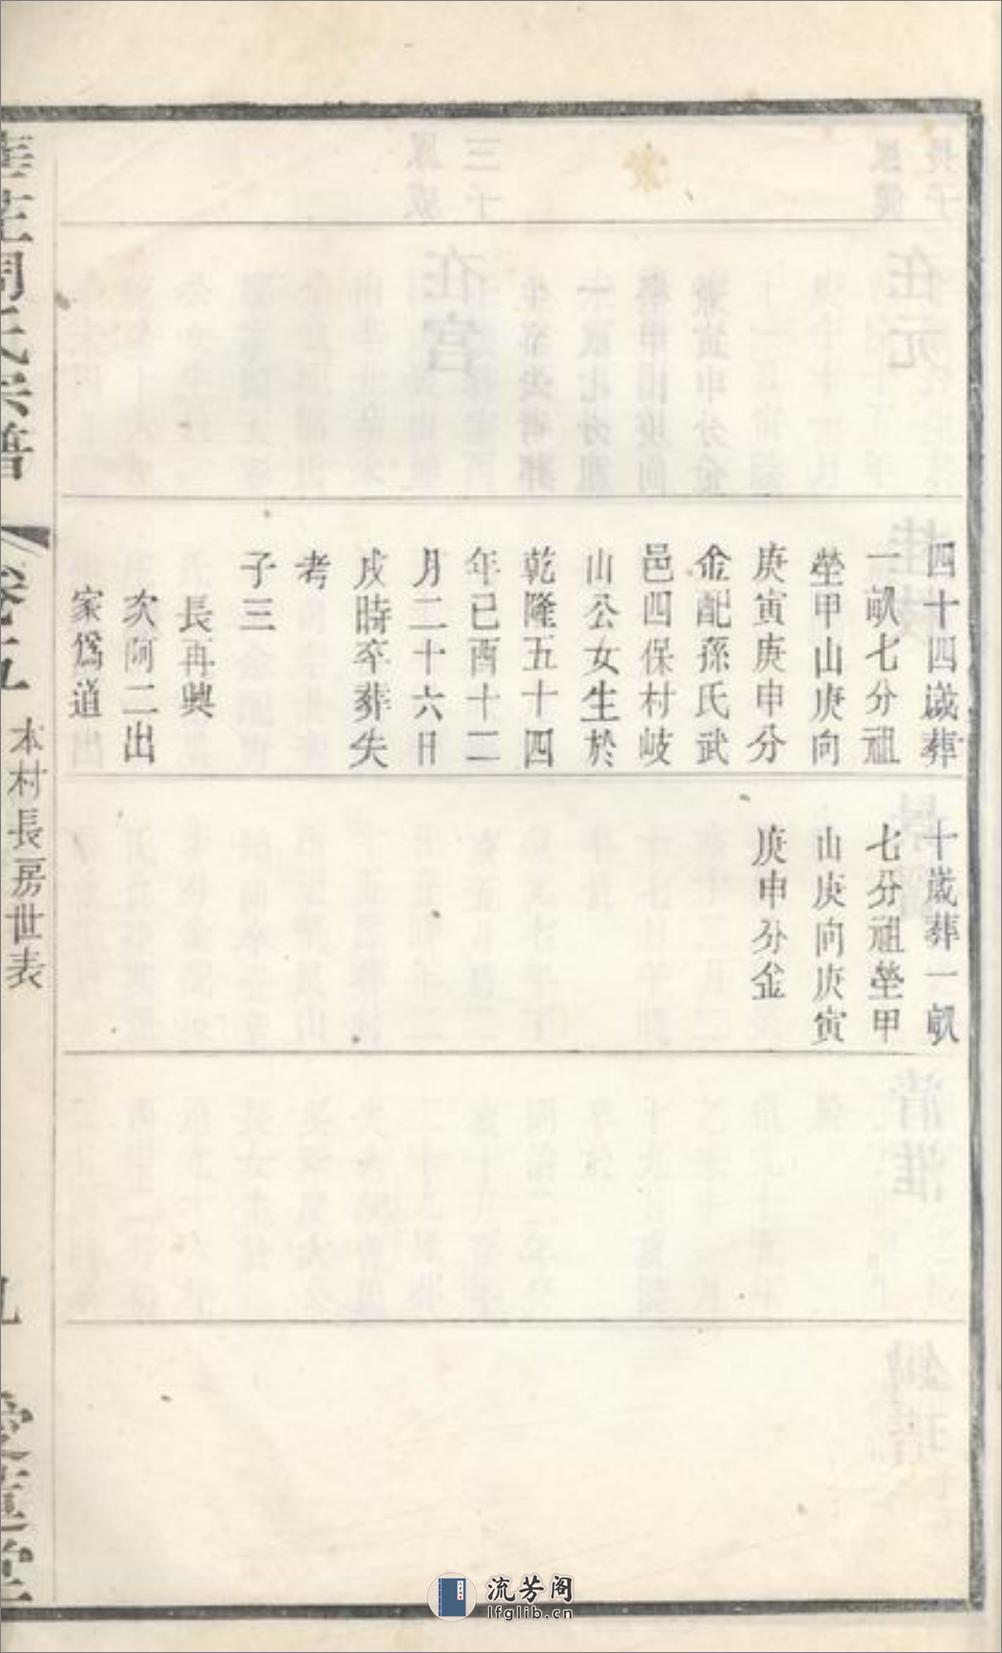 四十四歲葬
一畝七分祖
塋甲山庚向
庚寅庚申分
金配孫氏武
邑四保村岐
山公女生於
乾隆五十四
年己酉十二
月二十六日
戌時卒葬失
考
子三
長再興
次阿二出
家爲道出
十歲葬一畝
七分祖塋甲
山庚向庚寅
庚申分金
周氏宗譜
卷五
本村長房世表
九
愛蓮堂
流芳阁
lfglib.cn